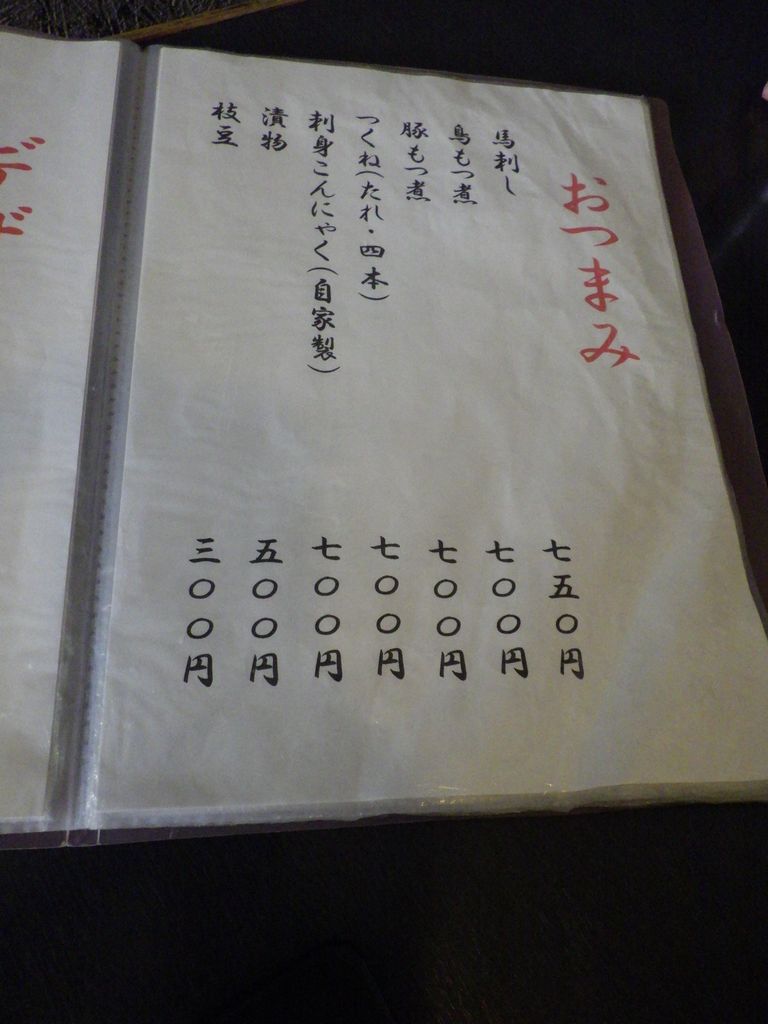 おつまみ
馬刺し 七五〇円
鳥もつ煮 七〇〇円
豚もつ煮 七〇〇円
つくね(たれ・四本) 七〇〇円
刺身こんにゃく(自家製) 七〇〇円
漬物 五〇〇円
枝豆 三〇〇円